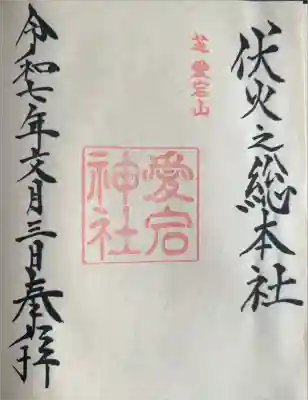 伏火之総本社
芝愛宕山
愛宕
神社
令和七年文月三日奉拝